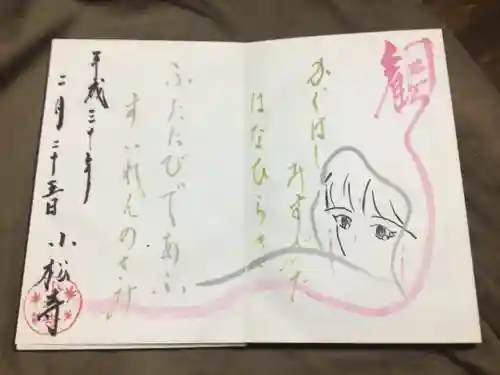 観
かぐはし
みずにた
はなひらき
ふたたびであふ
すいれんのさか
平成三十年
二月二十五日 小松寺